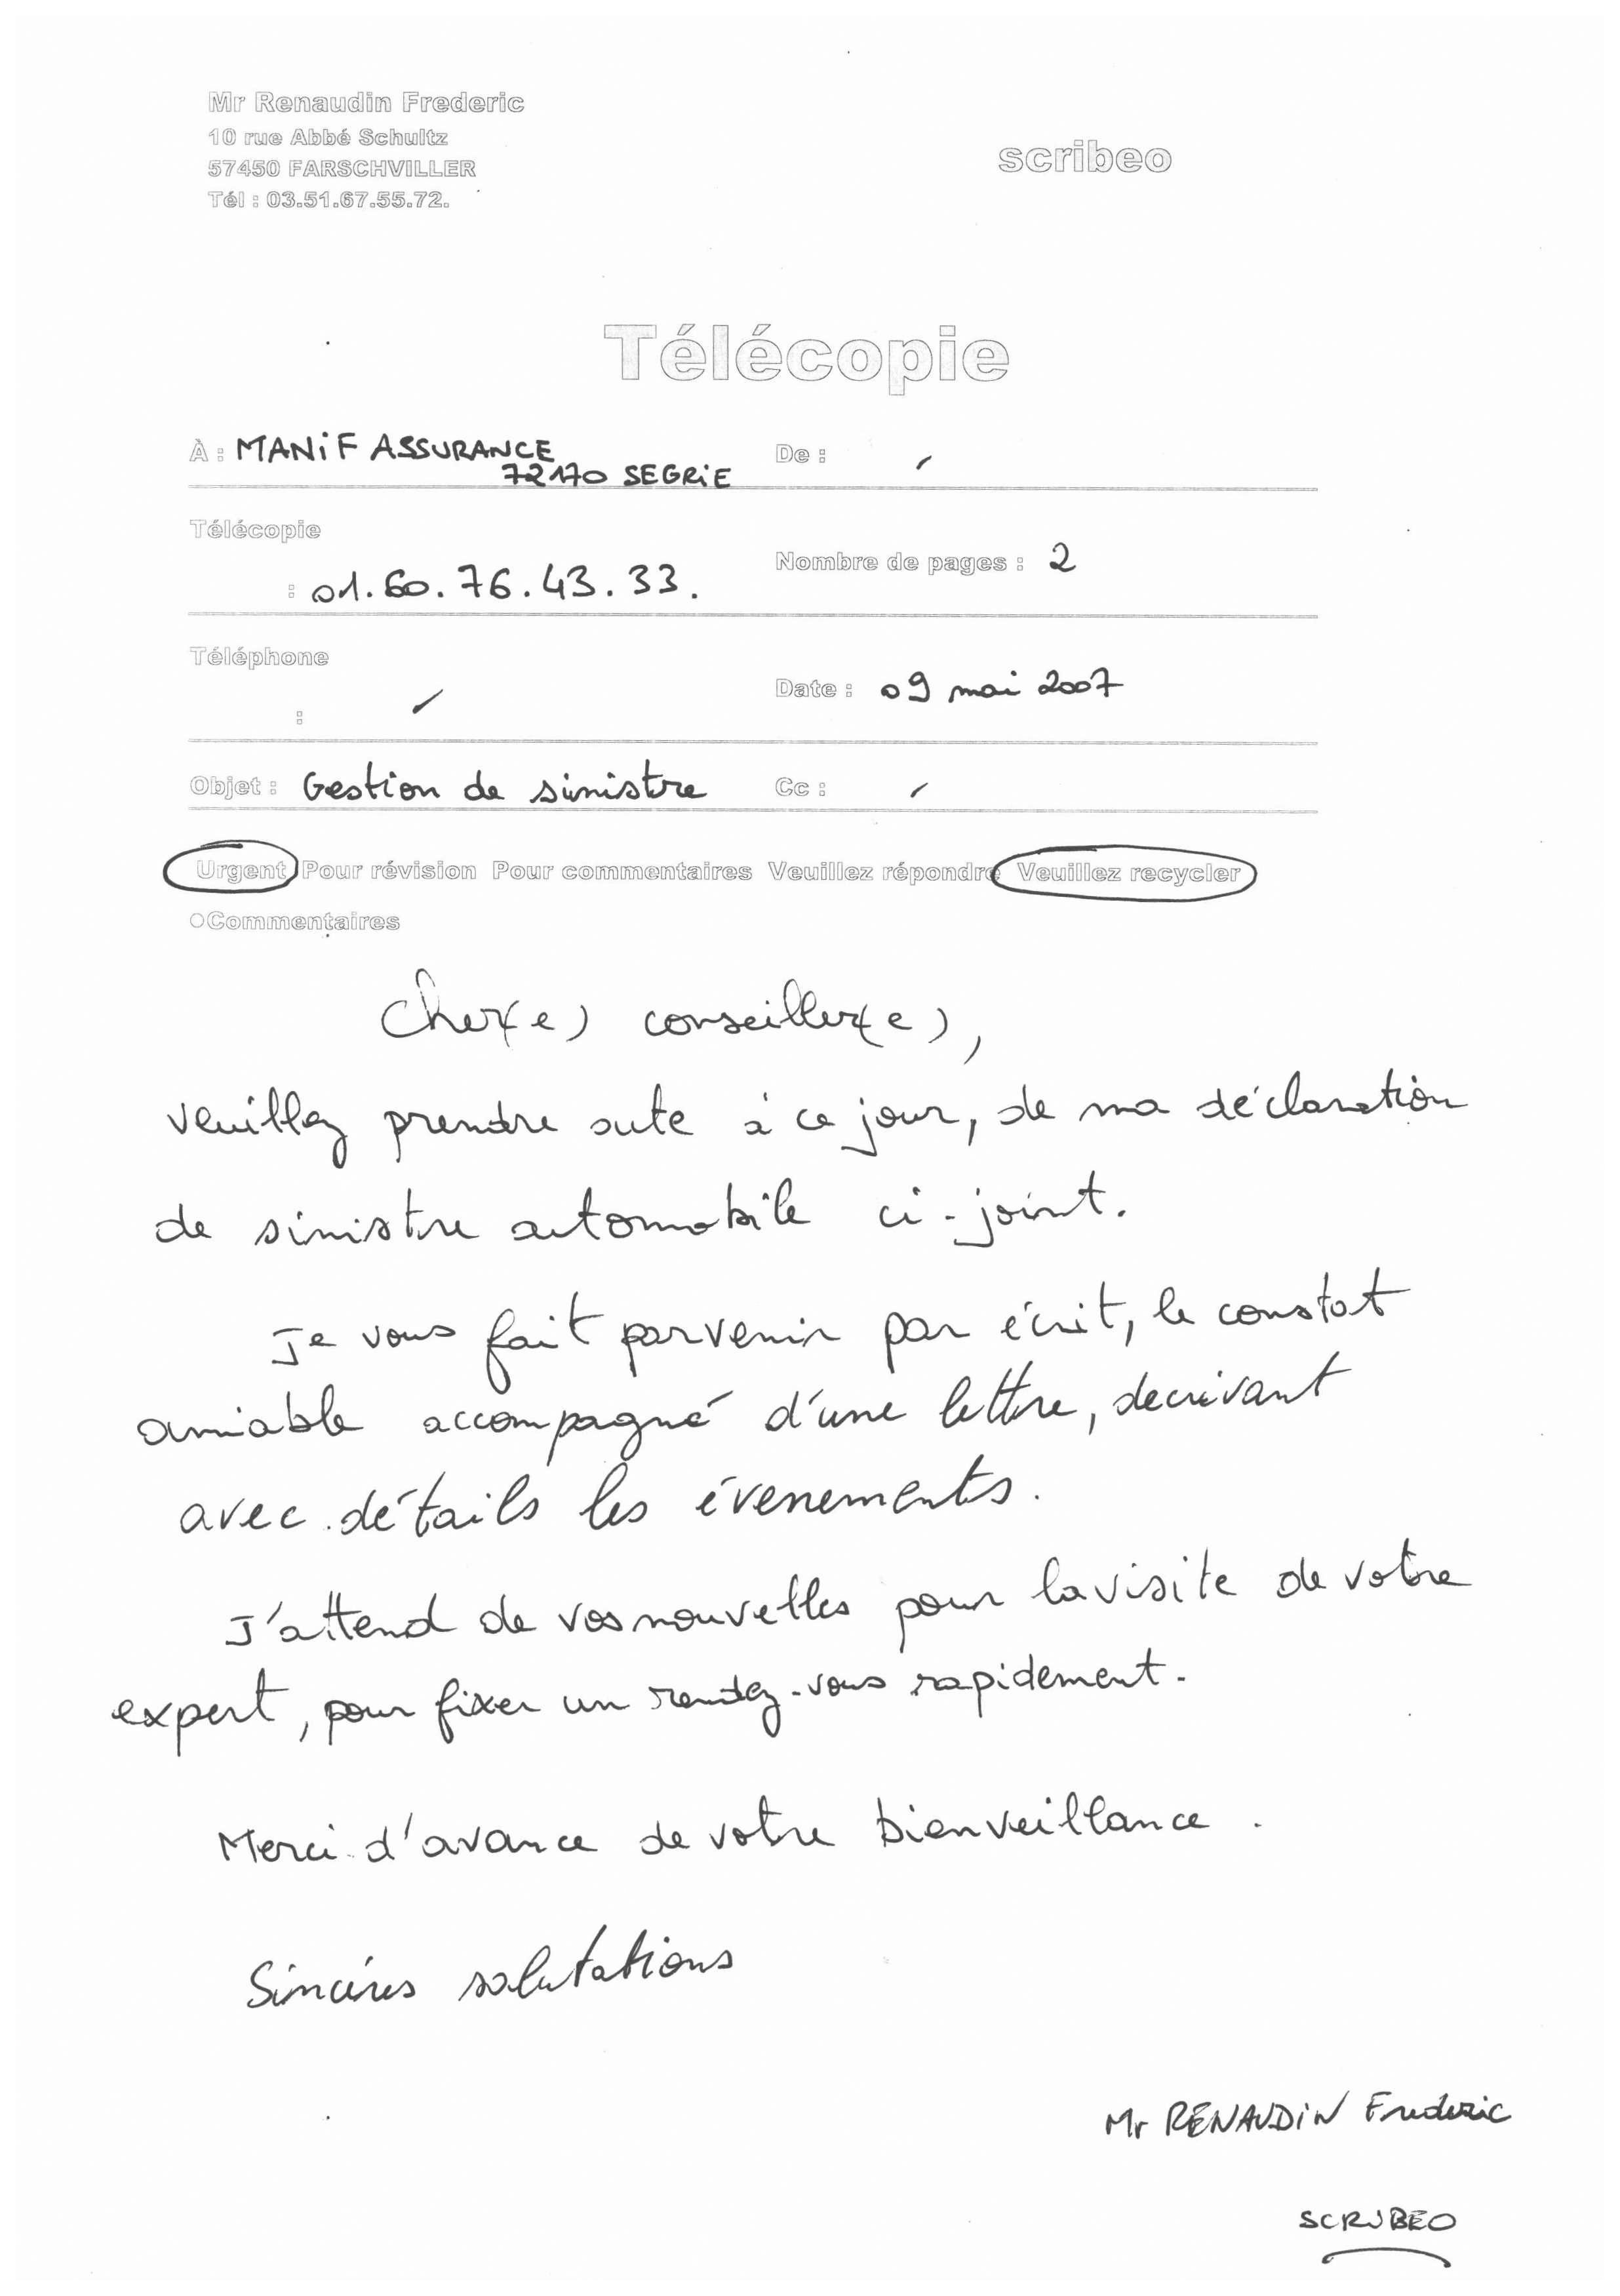 Mr Renaudin Frederic
10 rue Abbé Schultz
57450 FARSCHVILLER
Tél : 03.51.67.55.72.
scribeo
Télécopie
À : MANIF ASSURANCE
72170 SEGRIE
De :
Télécopie
: 01.60.76.43.33.
Nombre de pages : 2
Téléphone
:
Date : 09 mai 2007
Objet : Gestion de sinistre
Cc :
Urgent Pour révision Pour commentaires Veuillez répondre Veuillez recycler
Commentaires
Cher(e) conseiller(e),
veuillez prendre sute à ce jour, de ma déclaration
de sinistre automobile ci-joint.
Je vous fait parvenir par écrit, le constat
amiable accompagné d'une lettre, decrivant
avec détails les évenements.
J'attend de vos nouvelles pour la visite de votre
expert, pour fixer un rendez-vous rapidement.
Merci d'avance de votre bienveillance.
Sincères salutations
Mr RENAUDIN Frederic
SCRIBEO